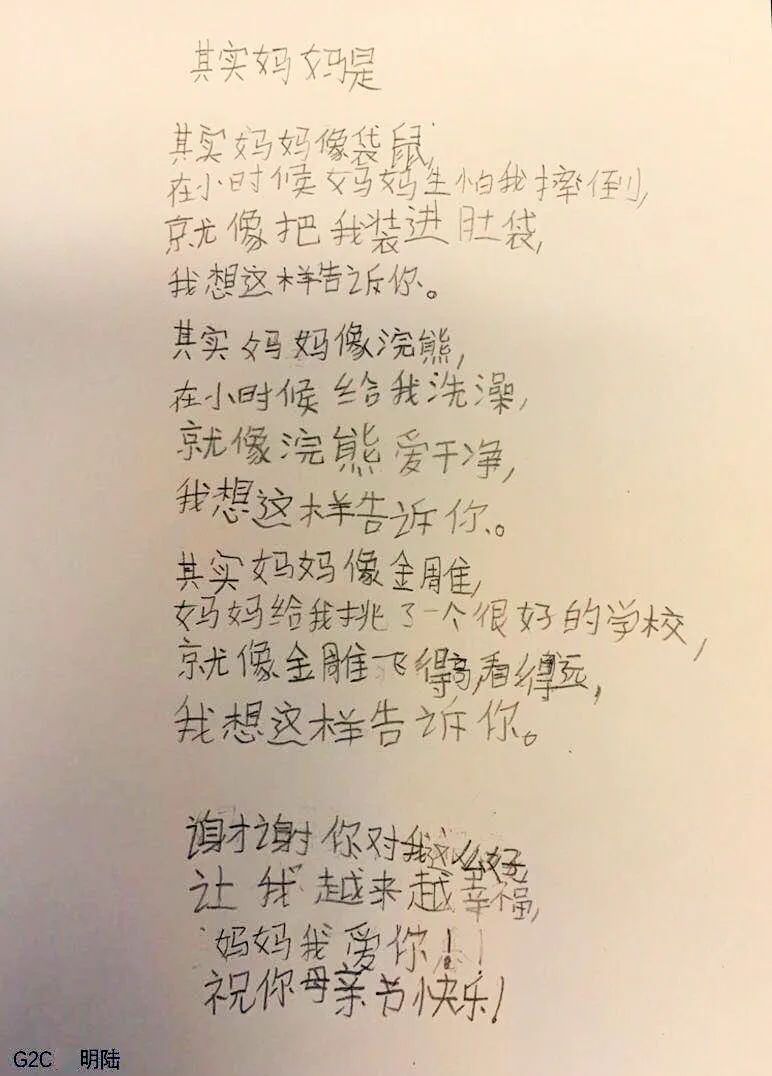 其实妈妈是
其实妈妈像袋鼠,
在小时候妈妈生怕我摔倒,
就像把我装进肚袋,
我想这样告诉你。
其实妈妈像浣熊,
在小时候给我洗澡,
就像浣熊爱干净,
我想这样告诉你。
其实妈妈像金雕,
妈妈给我挑了一个很好的学校,
就像金雕飞得高,看得远,
我想这样告诉你。
谢谢你对我这么好,
让我越来越幸福,
妈妈我爱你!!
祝你母亲节快乐!
G2C 明陆